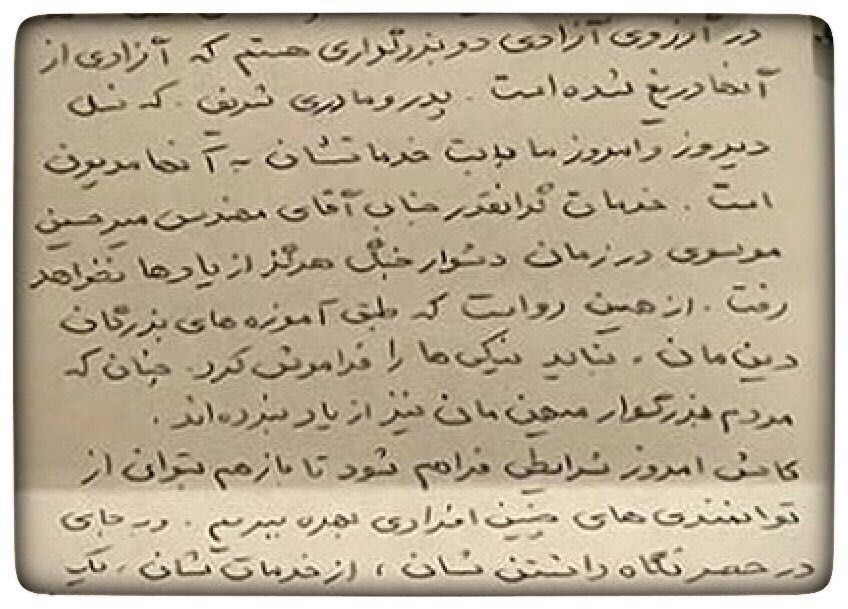 در آرزوی آزادی دو بزرگواری هستم که آزادی از
آنها دریغ شده است. پدر و مادری شریف. که نسل
دیروز و امروز ما بابت خدماتشان به آنها مدیون
است. خدمات گرانقدر جناب آقای مهندس میرحسین
موسوی در زمان دشوار جنگ هرگز از یادها نخواهد
رفت. از همین رواست که طبق آموزه های بزرگان
دین مان، نباید نیکی ها را فراموش کرد. چنان که
مردم بزرگوار میهن مان نیز از یاد نبرده اند.
کاش امروز شرایطی فراهم شود تا باز هم بتوان از
توانمندی های چنین افرادی بهره ببریم. و به جای
در حصر نگاه داشتن شان، از خدمات شان، نیک